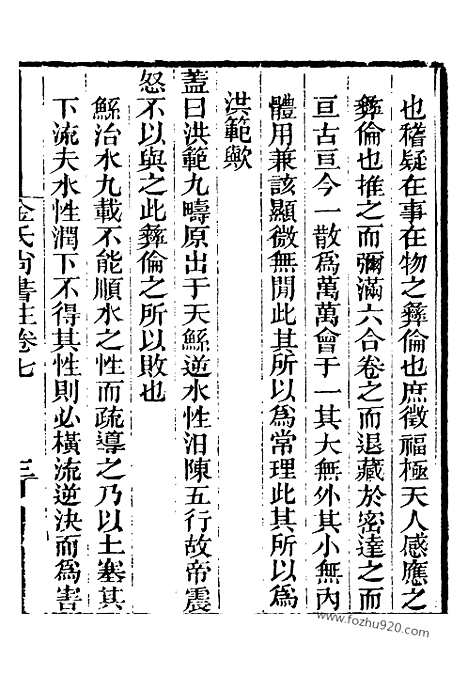 也稽疑在事在物之彝倫也庶徵福極天人感應之
彝倫也推之而彌滿六合卷之而退藏於密達之而
亘古亘今一散為萬萬會于一其大無外其小無內
體用兼該顯微無閒此其所以為常理此其所以為
洪範歟
蓋曰洪範九疇原出于天鯀逆水性汨陳五行故帝震
怒不以與之此彝倫之所以敗也
鯀治水九載不能順水之性而疏導之乃以土塞其
下流夫水性潤下不得其性則必橫流逆決而為害
金氏尚書注卷七
www.fozhu920.com